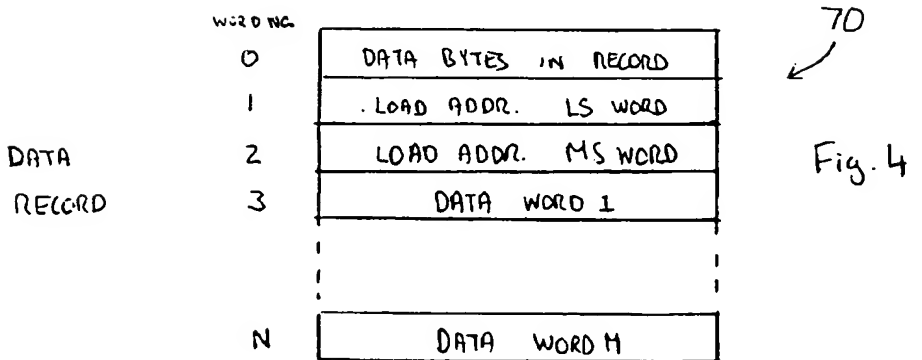 WORD NO.
70
0 DATA BYTES IN RECORD
1 . LOAD ADDR. LS WORD
DATA 2 LOAD ADDR. MS WORD
Fig. 4
RECORD 3 DATA WORD 1
N DATA WORD M